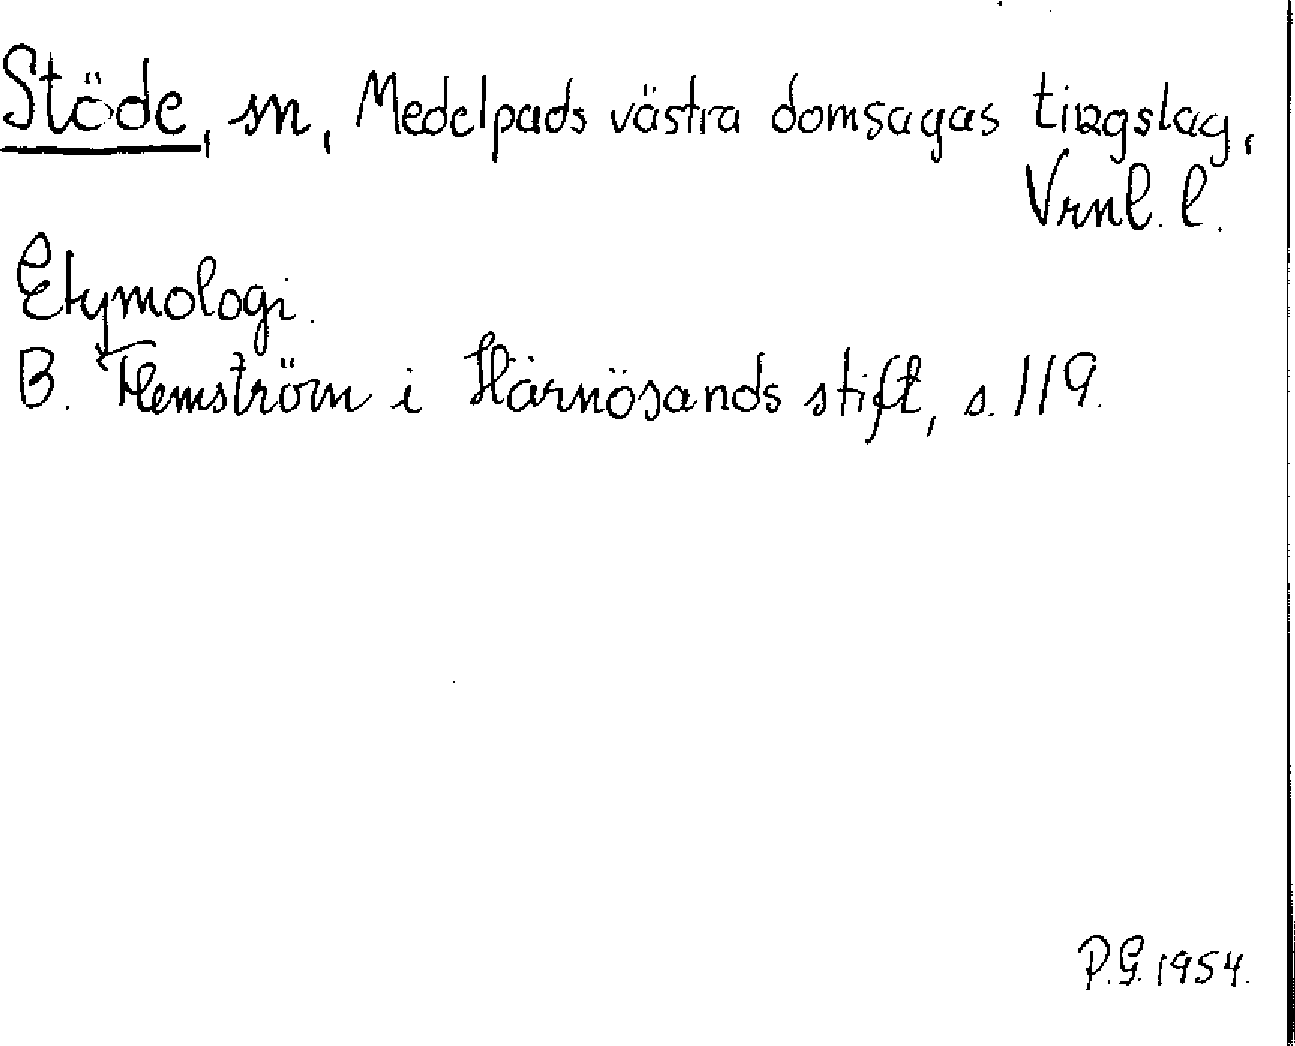 Stöde, sn, Medelpads västra domsagas tingslag,
Vrnl. l.
Etymologi.
B. Hemström i Härnösands stift, s. 119.
P.G. 1954.